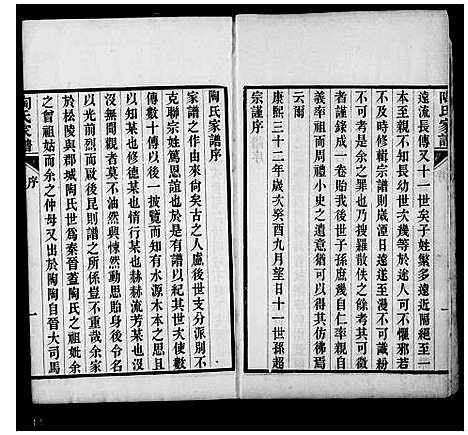 遠流長傳又十一世矣子姓繁多遠近隔絕至一
本至親不知長幼世次幾等於途人可不懼邪若
不及時修輯宗譜則歲湮日遠送至漫不可識紛
不可考是余之罪也乃搜羅散佚之餘考其可
者謹錄成一卷貽我後世子孫庶幾自仁率親自
義率祖者而周禮小史之遺意猶可以彷彿焉
云爾
康熙三十二年歲次癸酉九月望日十一世孫超
宗謹序
陶氏家譜序
家譜之作由來尚矣古之人慮後世支分派別不
克聯宗姓篤恩誼也於是有譜以紀其世次使數
傳數十傳以後一披覽而知有水源木本之思且
以知某也修德某也積行某也赫赫流芳某也沒
沒無聞觀者莫不油然興悚然動思貽身後令名
以光前烈而啟後昆則譜之所係豈不重哉余家
於松陵與郡城陶氏世為秦晉蓋陶氏之祖妣余
之曾祖姑而余之仲母又出於陶陶自晉大司馬
陶氏家譜
序
一
陶氏家譜
一